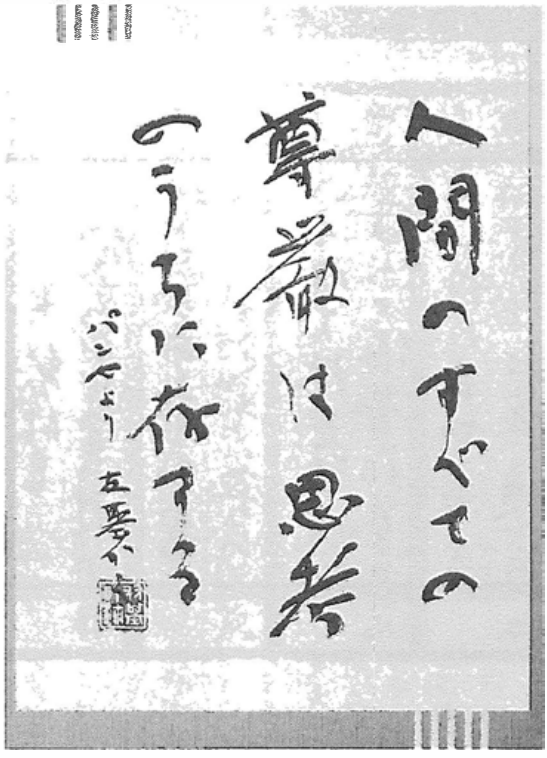 人間のすべての
尊厳は思考
のうちに存する
パンセより